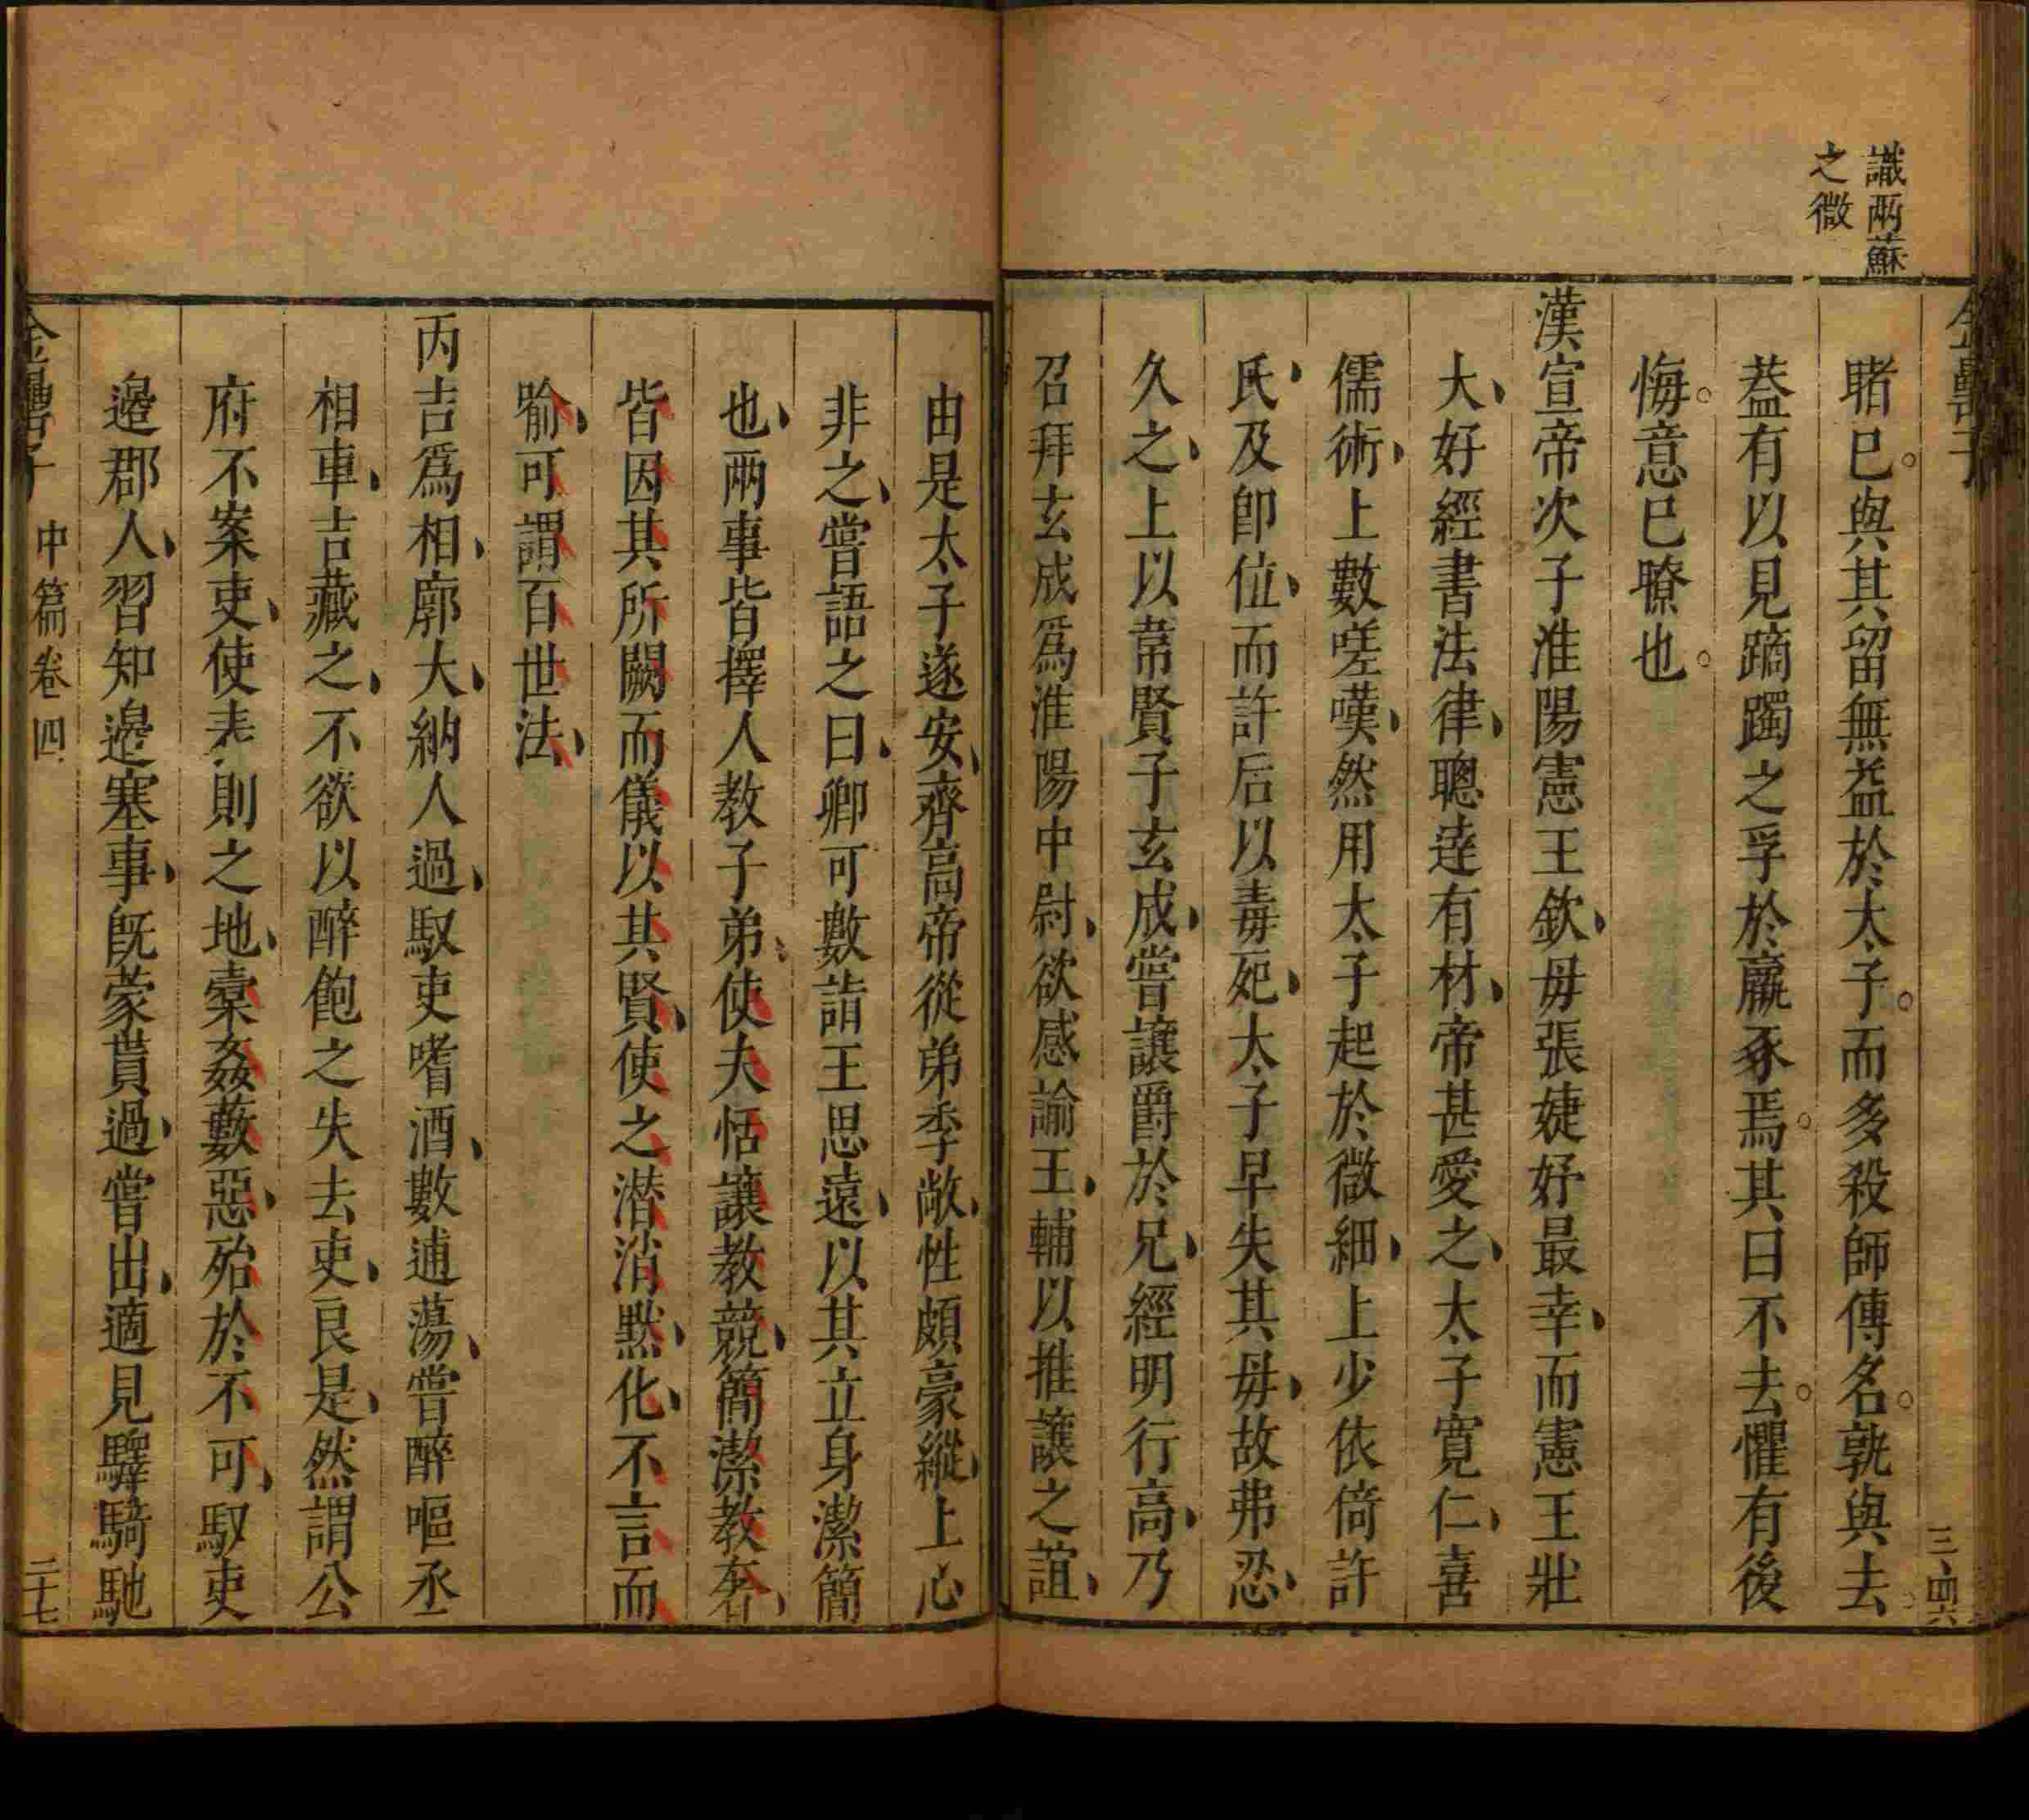 識兩蘇
之微
睹巳與其留無益於太子而多殺師傅名孰與去
葢有以見蹢躅之孚於羸豕焉其曰不去懼有後
悔意已瞭也
漢宣帝次子淮陽憲王欽毋張婕妤最幸而憲王壯
大好經書法律聰達有材帝甚愛之太子寬仁喜
儒術上數嗟嘆然用太子起於微細上少依倚許
氏及卽位而許后以毒死太子早失其毋故弗忍
久之上以韋賢子玄成嘗讓爵於兄經明行高乃
召拜玄成爲淮陽中尉欲感諭王輔以推讓之誼
由是太子遂安齊高帝從弟季敞性頗豪縱上心
非之嘗語之曰卿可數詣王思遠以其立身潔簡
也兩事皆擇人教子弟使夫恬讓教競簡潔教奢
皆因其所闕而儀以其賢使之潜消黙化不言而
喻可謂百世法
丙吉爲相廓大納人過馭吏嗜酒數逋蕩嘗醉嘔丞
相車吉藏之不欲以醉飽之失去吏良是然謂公
府不案吏使表則之地槖姦藪惡殆於不可馭吏
邊郡人習知邊塞事旣蒙貰過嘗出適見驛騎馳
中篇卷四
二十七